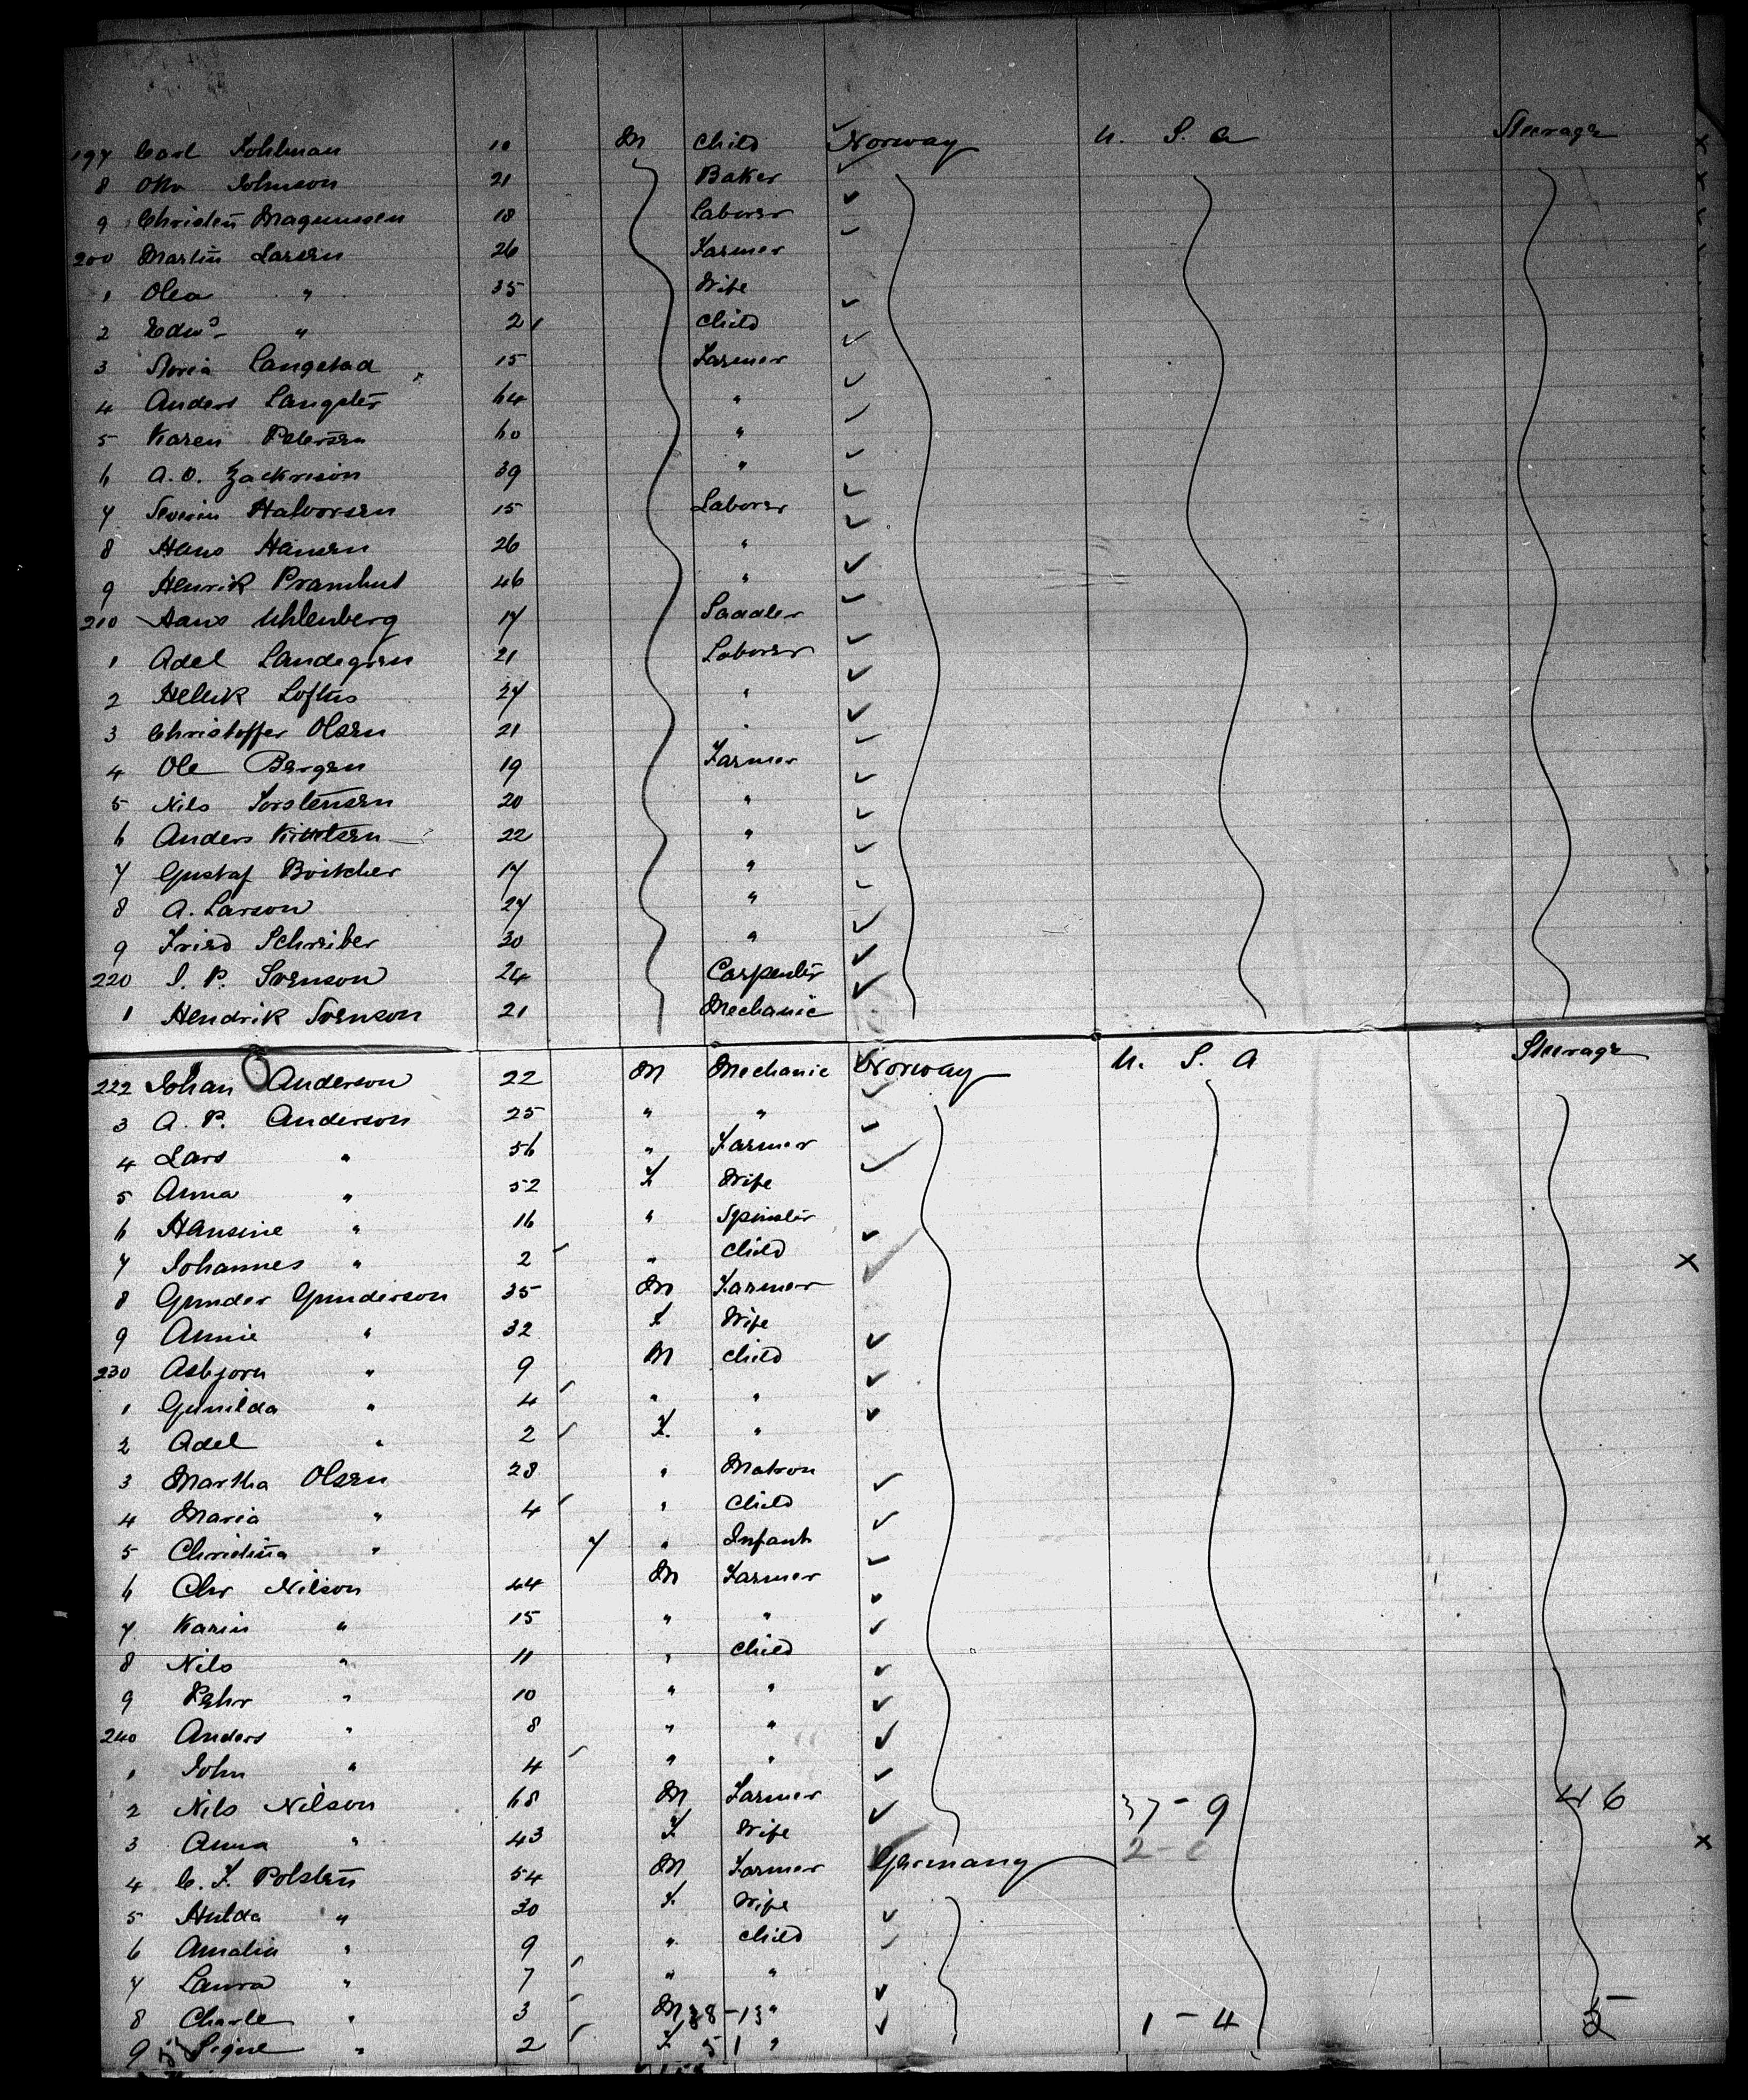 197 Carl Pohlman 10 M Child Norway U. S. A Steerage
8 Johnson 21 Baker
9 Christen Magnussen 18 Laborer
200 Martin Larsen 26 Farmer
1 Olea " 35 Wife
2 Edwd " 2 Child
3 Langstad 15 Farmer
4 Anders 64 "
5 Karen Petersen 60 "
6 A. O. Zackrison 39 "
7 Severin Halvorsen 15 Laborer
8 Hans Hansen 26 "
9 Henrik 46 "
210 Hans Uhlenberg 17 Saddler
1 Adel Landegren 21 Laborer
2 Hellik Loftus 27 "
3 Christoffer Olsen 21 "
4 Ole Bergen 19 Farmer
5 Nils Torstensen 20 "
6 Anders 22 "
7 Gustaf Boitcher 17 "
8 A. Larson 27 "
9 Fried Schreiber 30 "
220 P. Svenson 24 Carpenter
1 Hendrik Svenson 21 Mechanic
222 Johan Anderson 22 M Mechanic Norway U. S. A Steerage
3 A. P. Anderson 25 " "
4 Lars " 56 " Farmer
5 Anna " 52 F Wife
6 Hansine " 16 " Spinster
7 Johannes " 2 " Child X
8 Gunder Gunderson 35 M Farmer
9 Annie " 32 F Wife
230 Asbjorn " 9 M Child
1 Gunilda " 4 " "
2 Adel " 2 F. "
3 Martha Olsen 28 " Matron
4 Maria " 4 " Child
5 Christina " 7 " Infant
6 Chr Nilson 44 M Farmer
7 Karin " 15 " "
8 Nils " 11 " Child
9 Pehr " 10 " "
240 Anders " 8 " "
1 John " 4 " "
2 Nils Nilson 68 M Farmer 37-9 46
3 Anna " 43 F. Wife X
4 C. F. Polsten 54 M Farmer Germany
5 Hulda " 30 F. Wife
6 Amalia " 9 " Child
7 Laura " 7 " "
8 Charle " 3 M " 1-4
9 Signe " 2 F. "